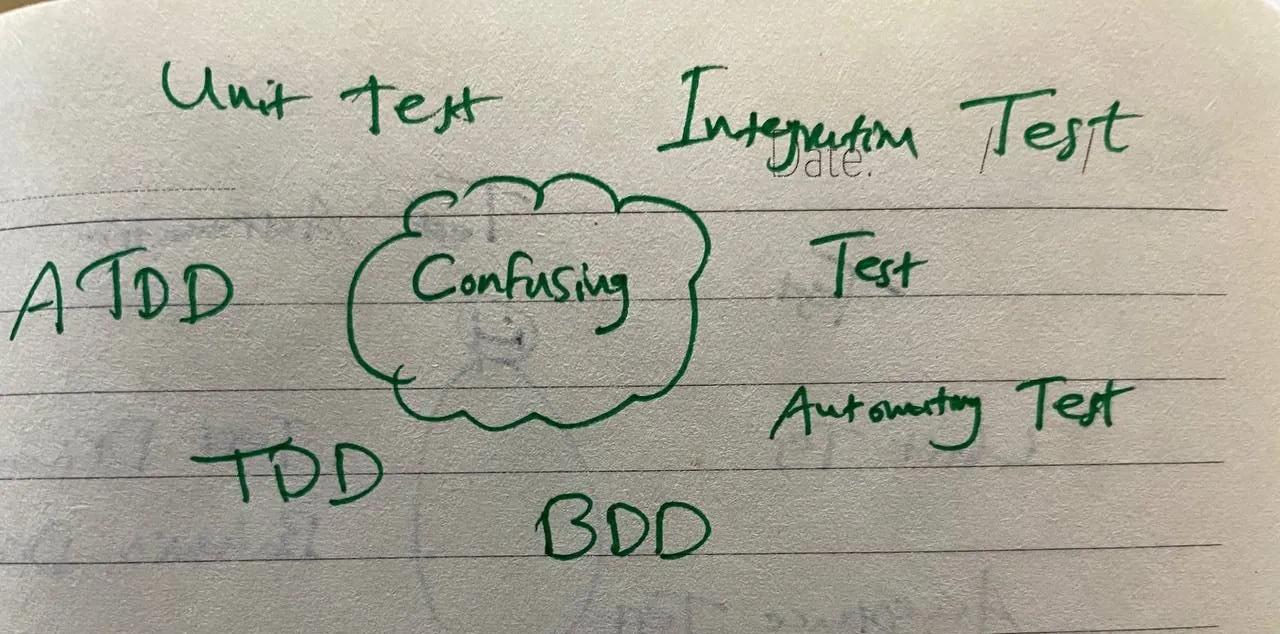 Unit Test
Integration Test
Date.
Confusing
Test
ATDD
Automating Test
TDD
BDD